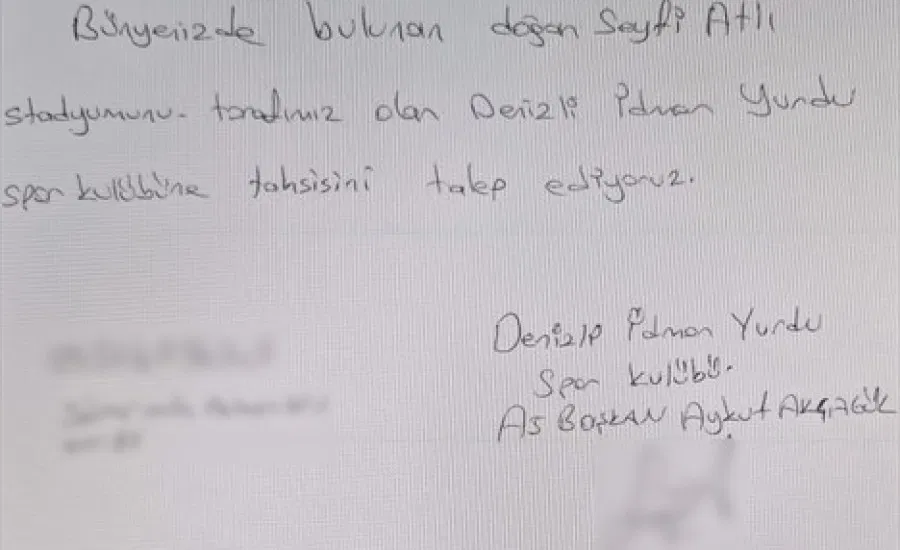 Bünyenizde bulunan doğan Seyfi Atlı
stadyumunu. tarafımız olan Denizli İdman Yurdu
spor kulübüne tahsisini talep ediyoruz.
Denizli İdman Yurdu
Spor kulübü.
AS BAŞKAN Aykut AKÇAGÜK